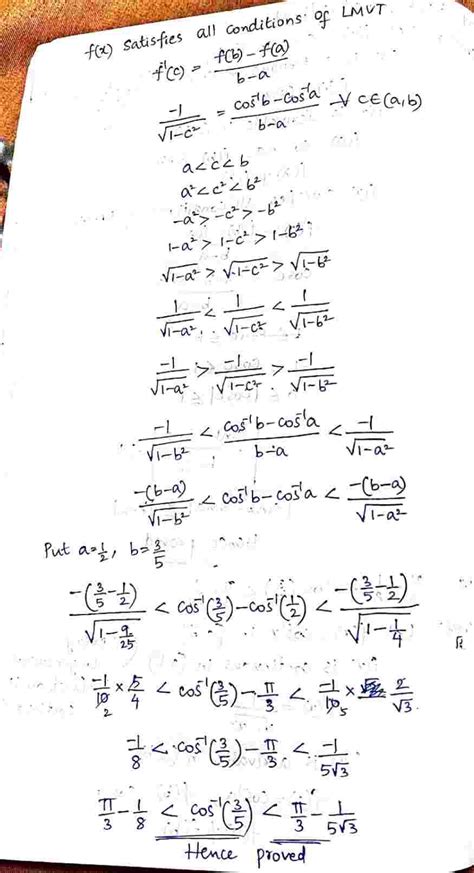 f(x) satisfies all conditions of LMVT
f'(c) = (f(b) - f(a))/(b-a)
-1/√(1-c²) = (cos⁻¹b - cos⁻¹a)/(b-a) ∀ c∈(a,b)
a<c<b
a²<c²<b²
-a²>-c²>-b²
1-a²>1-c²>1-b²
√(1-a²) > √(1-c²) > √(1-b²)
1/√(1-a²) < 1/√(1-c²) < 1/√(1-b²)
-1/√(1-a²) > -1/√(1-c²) > -1/√(1-b²)
∴ -1/√(1-b²) < (cos⁻¹b - cos⁻¹a)/(b-a) < -1/√(1-a²)
-(b-a)/√(1-b²) < cos⁻¹b - cos⁻¹a < -(b-a)/√(1-a²)
Put a=1/2, b=3/5
-(3/5 - 1/2)/√(1-9/25) < cos⁻¹(3/5) - cos⁻¹(1/2) < -(3/5 - 1/2)/√(1-1/4)
-1/10 2 × 5/4 < cos⁻¹(3/5) - π/3 < -1/10 5 × 2/√3
-1/8 < cos⁻¹(3/5) - π/3 < -1/5√3
π/3 - 1/8 < cos⁻¹(3/5) < π/3 - 1/5√3
Hence proved